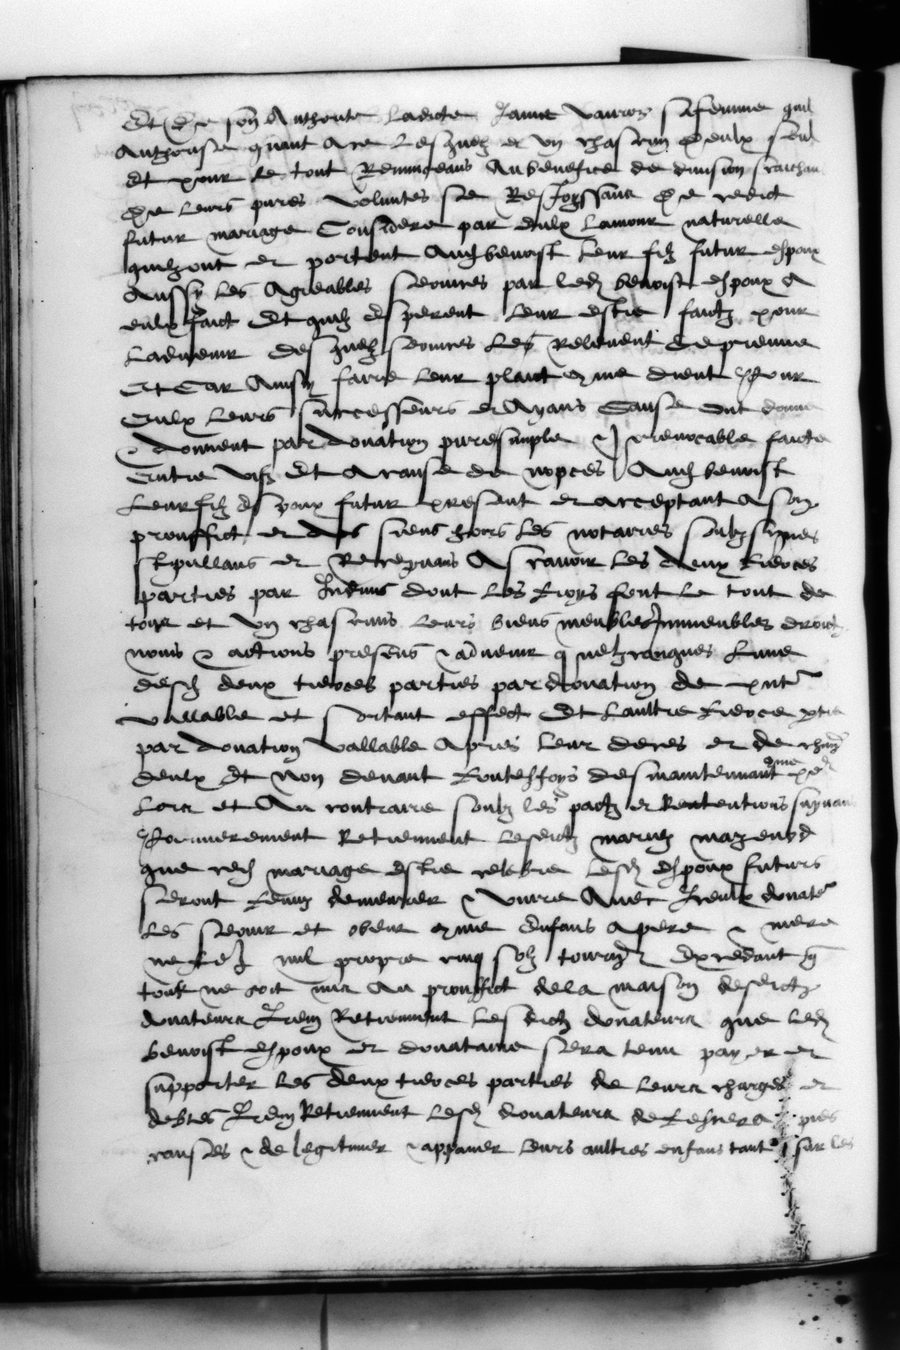 Et de son Authorite Ladicte Jame Vauroz sa femme quil
Authorise quant a ce Lesquelz et Un chascun deulx seul
Et pour le tout Renunceans Au benefice de division
De leurs pures voluntes se Resjoyssans De cedict
futur mariage Considere par eulx lamour naturelle
quilz ont et portent Aud benoist Leur filz futur espoux
Aussy Les Agreables services par led benoist espoux A
eulx faict Et quilz esperent Leur estre faictz pour
Ladvenir Desquelz services Les Relevent De preuve
Et Car Ainsy faire Leur plaict come dient Pour
Eulx Leurs successeurs et Ayans Cause Ont donne
& donnent par donation pure simple & Irrevocable faicte
Entre vifz Et A cause de nopces Aud benoist
Leur filz espoux futur present et acceptant A son
prouffict et des siens hoirs Les notaires soubzsignes
stipullans et Recepvans Ascavoir Les deux tierces
parties par Indivis dont Les troys font Le tout de
tous et Un chascuns Leurs biens meubles Immeubles droictz
noms & actions presens & advenir q nelzconques Lune
desd deux tierces parties par donation de
vallable et sortant effect Et Laultre tierce ptie
par donation vallable Apres Leur deces et de chun
deulx Et Non devant toutesfoys des maintennant come
Lors et Au contraire soubz les pactz et Retentions suyvans
Premierement Retiennent Lesdictz maries
que ced mariage estre celebre Lesd espoux futurs
seront tenuz demeurer & vivre Avec Iceulx donate
Les servir et obeir come Enfans a pere & mere
nul propre cinq solz tourn Excedant q
tout ne soit mis Au prouffict de la maison desdictz
donateurs Item Retiennent Les dictz donateurs que Led
benoist espoux et donataire sera tenu payer et
supporter Les deux tierces parties de Leurs charges et
debtes Item Retiennent Lesd donateurs de pies
causes & de legitimer & appaner Leurs aultres enfans tant sur les